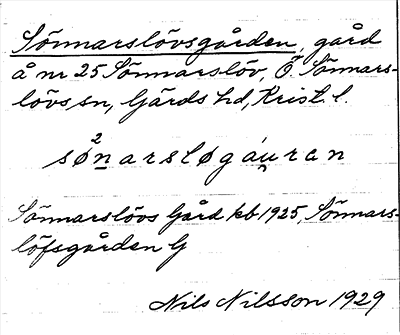 Sönnarslövsgården, gård
å nr 25 Sönnarslöv, Ö. Sönnars-
lövs sn, Gärds hd, Krist. l.
sø²narsløgáu̯ran
Sönnarslövs Gård kb 1925, Sönnars-
löfsgården G
Nils Nilsson 1929